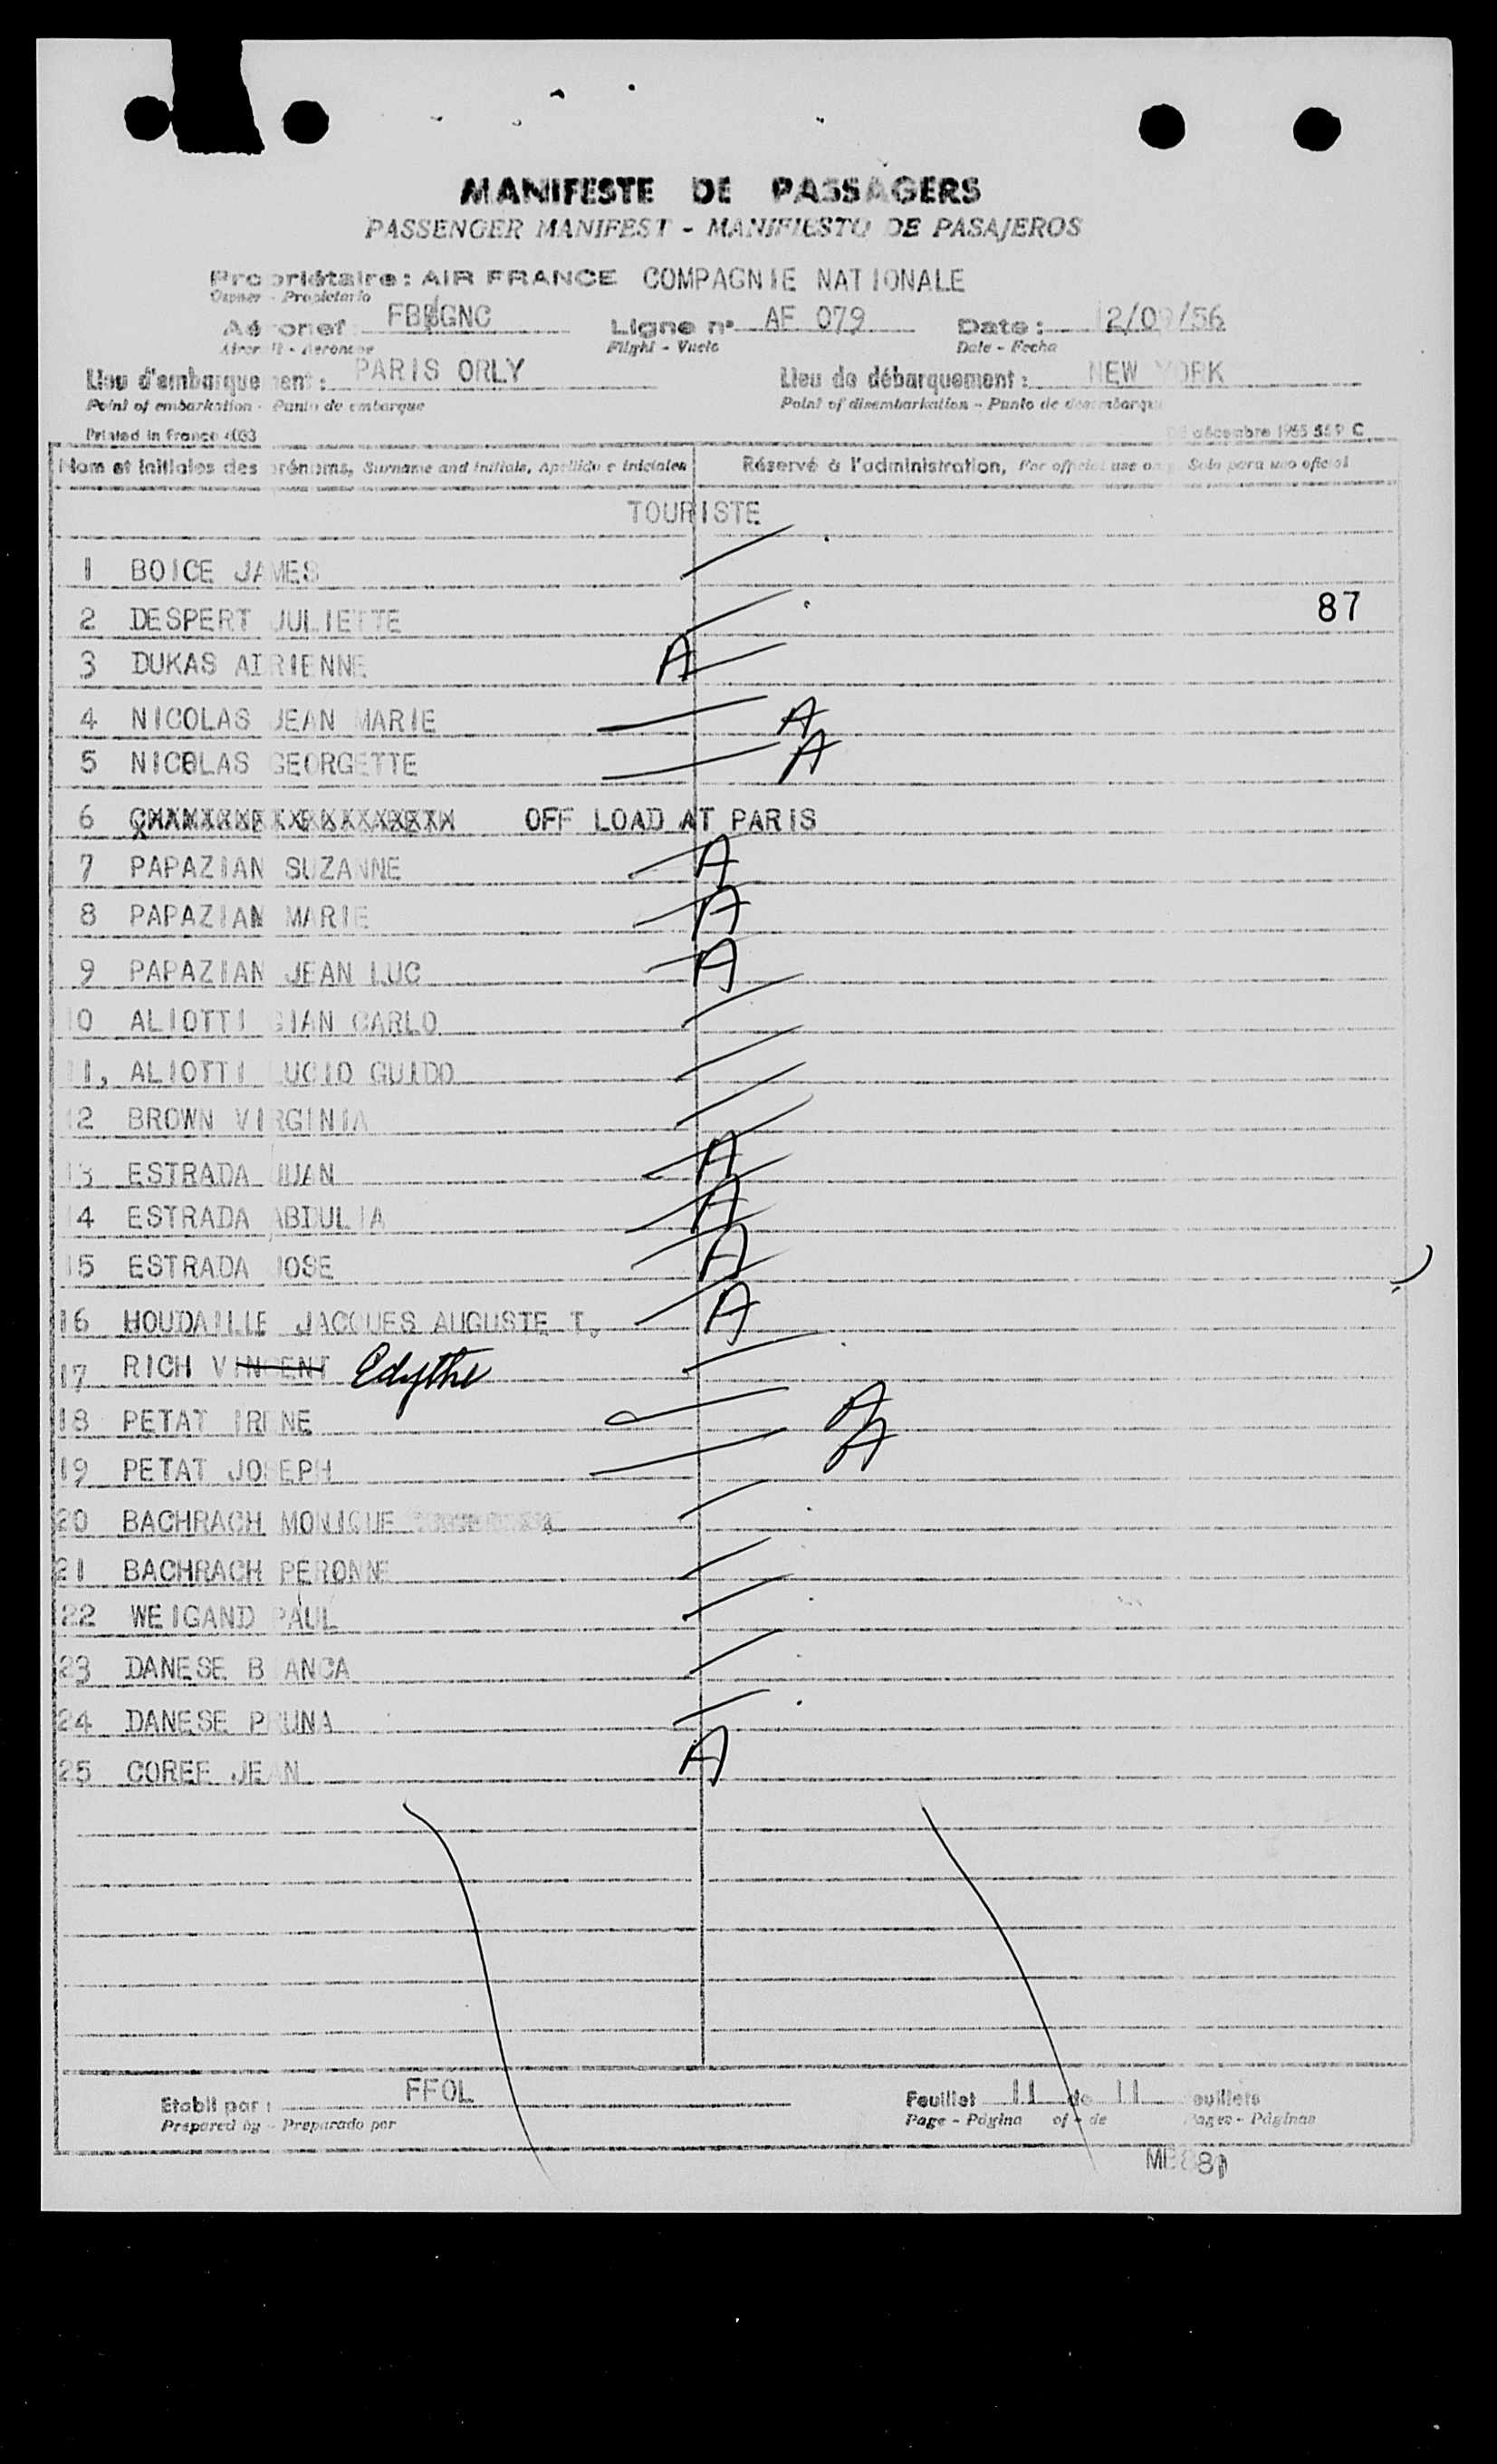 MANIFESTE DE PASSAGERS
PASSENGER MANIFEST - MANIFIESTO DE PASAJEROS
Propriétaire: AIR FRANCE COMPAGNIE NATIONALE
Owner - Propietario
Aéronef FBBGNC Ligne n° AF 079 Date: 12/09/56
Aircraft - Aeronave Flight - Vuelo Date - Fecha
Lieu d'embarquement: PARIS ORLY Lieu de débarquement: NEW YORK
Point of embarkation - Punto de embarque Point of disembarkation - Punto de desembarque
Printed in France 4033 décembre 1955 559 C
Nom et initiales des prénoms, Surname and initials, Apellido e iniciales Réservé à l'administration, For official use only Solo para uso oficial
TOURISTE
1 BOICE JAMES
87
2 DESPERT JULIETTE
3 DUKAS AIRIENNE A
4 NICOLAS JEAN MARIE A
5 NICOLAS GEORGETTE A
6 OFF LOAD AT PARIS
7 PAPAZIAN SUZANNE A
8 PAPAZIAN MARIE A
9 PAPAZIAN JEAN LUC A
10 ALIOTTI GIAN CARLO
11, ALIOTTI LUCIO GUIDO
12 BROWN VIRGINIA
13 ESTRADA JUAN A
14 ESTRADA ABDULIA A
15 ESTRADA JOSE A
16 HOUDAILLE JACQUES AUGUSTE T. A
17 RICH VINCENT Edythe
18 PETAT IRENE A
19 PETAT JOSEPH A
20 BACHRACH MONIQUE
21 BACHRACH PERONNE
22 WEIGAND PAUL
23 DANESE BIANCA
24 DANESE PRUNA
25 COREE JEAN A
Etabli par: FFOL Feuillet 11 de 11 feuillets
Prepared by - Preparado por Page - Página of - de Pages - Páginas